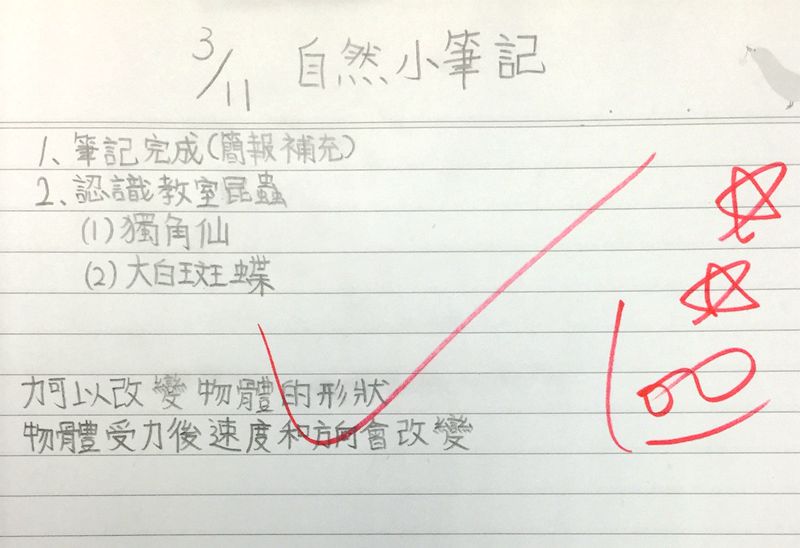 3/11 自然小筆記
1、筆記完成(簡報補充)
2、認識教室昆蟲
(1)獨角仙
(2)大白斑蝶
力可以改變物體的形狀
物體受力後速度和方向會改變